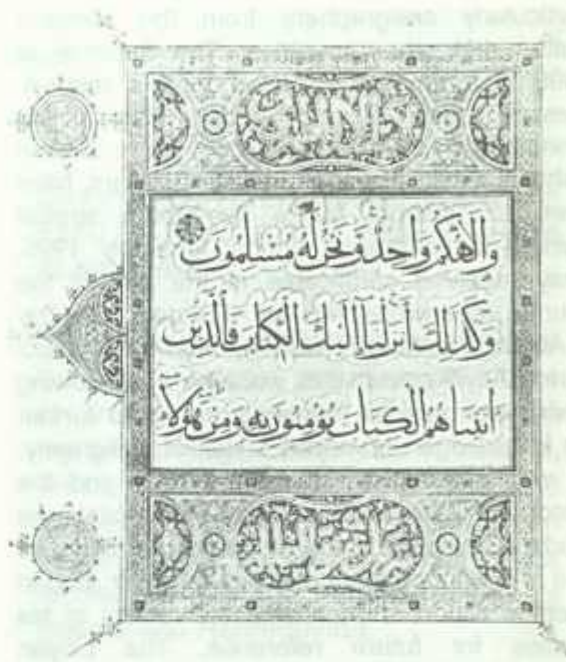 وَإِلَهُكُمْ وَاحِدٌ وَنَحْنُ لَهُ مُسْلِمُونَ
وَكَذَلِكَ أَنْزَلْنَآ إِلَيْكَ الْكِتَابَ فَالَّذِينَ
آتَيْنَاهُمُ الْكِتَابَ يُؤْمِنُونَ بِهِ وَمِنْ هَؤُلَآ